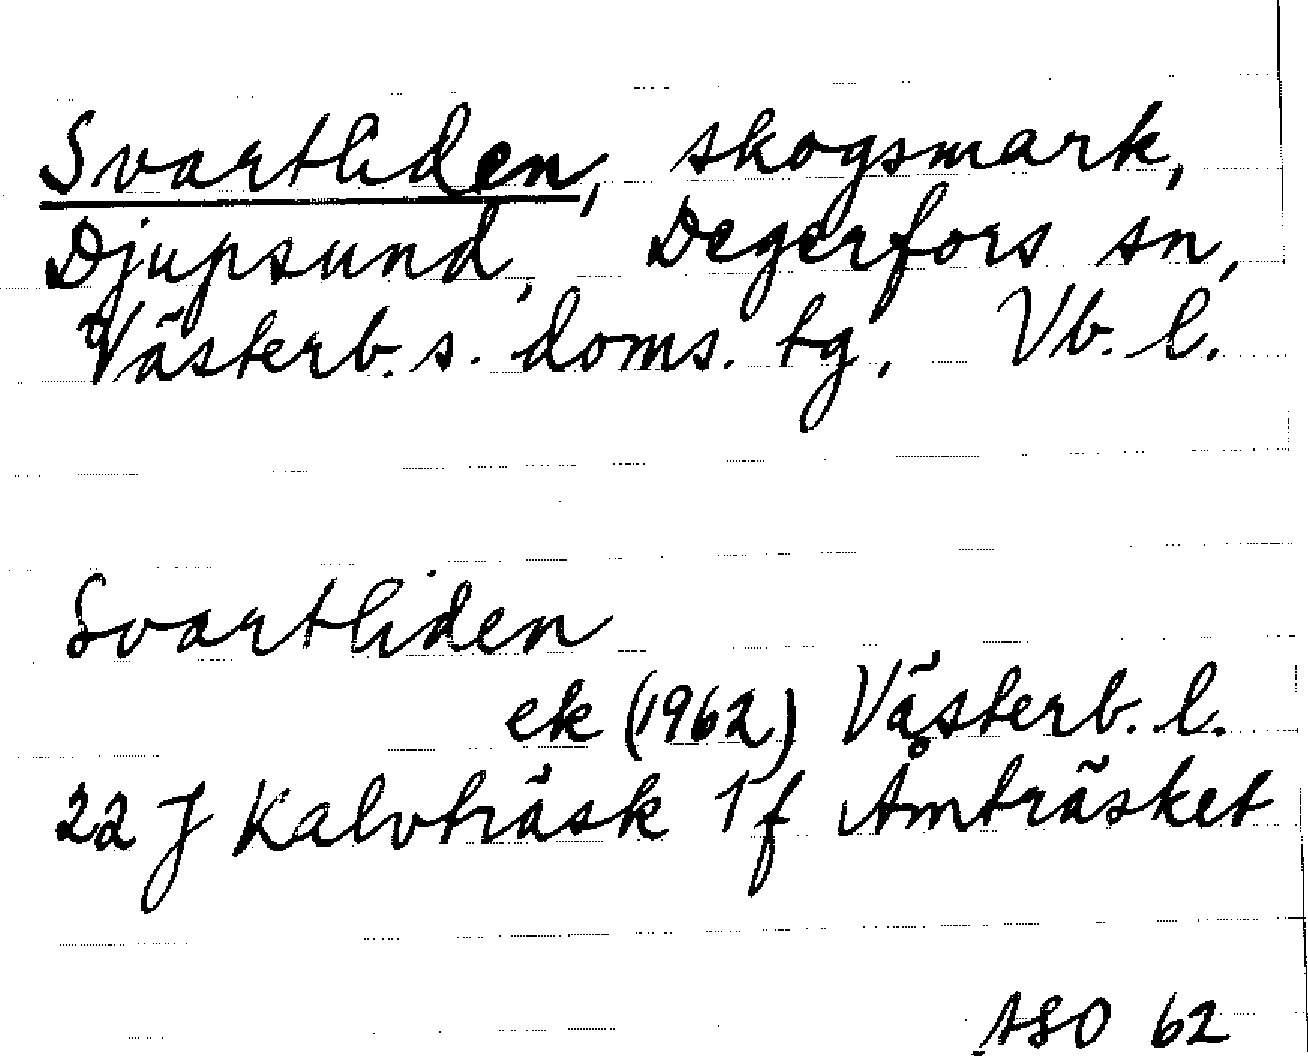 Svartliden, skogsmark,
Djupsund, Degerfors sn,
Västerb. s. doms. tg, Vb. l.
Svartliden
ek (1962) Västerb. l.
22 J Kalvträsk 1 f Åmträsket
ASO 62